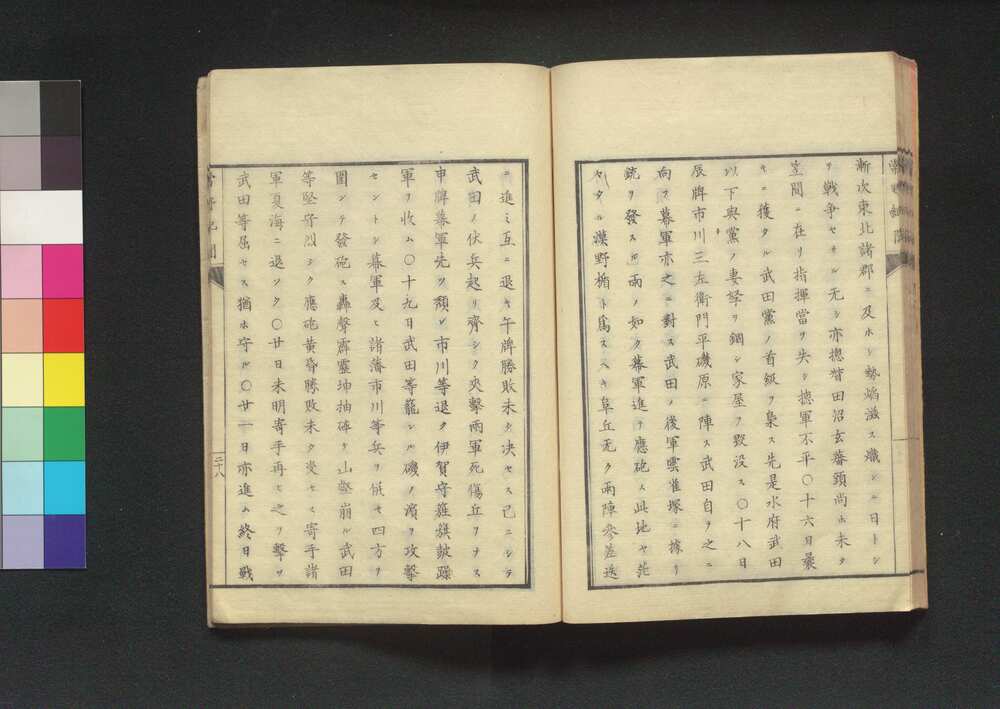 漸次東北諸郡ニ及ホシ勢焰滋ス熾ンニ日トシ
テ戦争セサル无シ亦摠督田沼玄蕃頭尚ホ未タ
笠間ニ在リ指揮當ヲ失シ摠軍不平〇十六日曩
キニ獲タル武田黨ノ首級ヲ梟ス先是水府武田
以下與黨ノ妻孥ヲ錮シ家屋ヲ毀没ス〇十八日
辰牌市川三左衞門平磯原ニ陣ス武田自ヲ之ニ
向フ幕軍亦之ニ對ス武田ノ後軍雲雀塚ニ據リ
銃ヲ發スヿ雨ノ如ク幕軍進テ應砲ス此地ヤ茫
々タル漠野楯ト爲スヘキ阜丘无ク兩陣参差迭
ニ進ミ互ニ退キ午牌勝敗未タ决セス已ニシテ
武田ノ伏兵起リ齊シク夾擊兩軍死傷丘ヲナス
申牌幕軍先ツ頽レ市川等退ク伊賀守旌旗皷躁
軍ヲ收ム〇十九日武田等籠レル磯ノ濱ヲ攻擊
セントシ幕軍及ヒ諸藩市川等兵ヲ仮セ四方ヲ
圍ンテ發砲ス轟聲霹靂坤抽碎ケ山壑崩ル武田
等堅守烈シク應砲黄昏勝敗未タ受セス寄手諸
軍夏海ニ退ソク〇廿日未明寄手再ヒ之ヲ擊ツ
武田等屈セス猶ホ守ル〇廿一日亦進ム終日戰
二十八